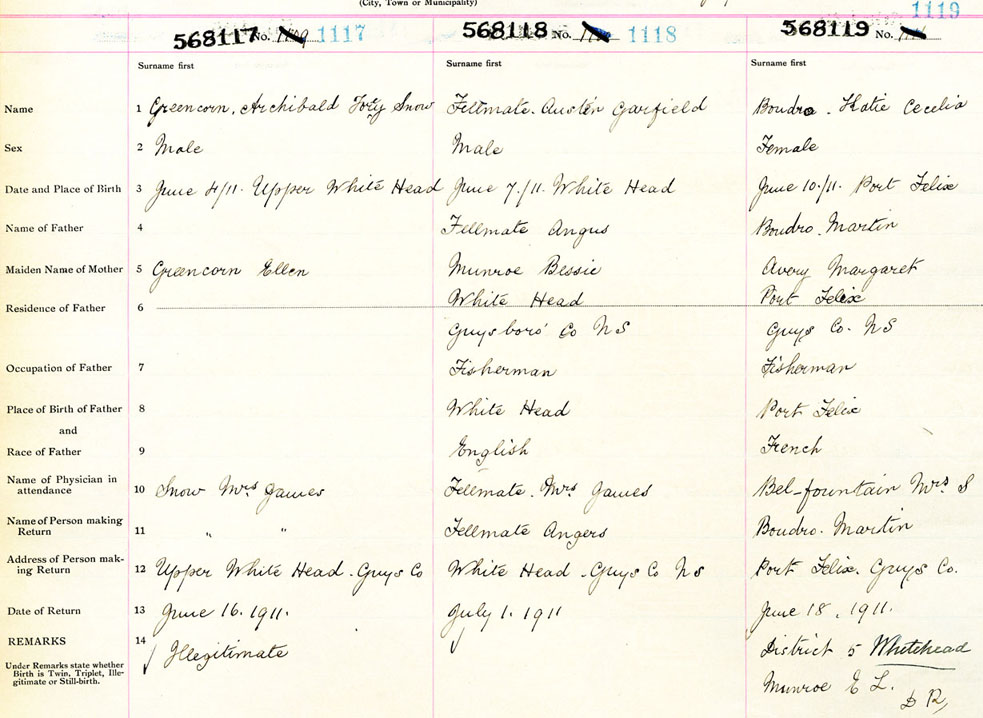 (City, Town or Municipality)
1119
568117 No. 1117
568118 No. 1118
568119 No.
Surname first Surname first Surname first
Name 1 Greencorn, Archibald Snow Fellmate. Austen Garfield Boudro. Katie Cecelia
Sex 2 Male Male Female
Date and Place of Birth 3 June 4/11. Upper White Head June 7./11. White Head June 10./11. Port Felix
Name of Father 4 Fellmate Angus Boudro. Martin
Maiden Name of Mother 5 Greencorn Ellen Munroe Bessie Avery Margaret
Residence of Father 6 White Head Port Felix
Guysboro' Co N S Guys Co. N S
Occupation of Father 7 Fisherman Fisherman
Place of Birth of Father 8 White Head Port Felix
and
Race of Father 9 English French
Name of Physician in
attendance 10 Snow Mrs James Fellmate. Mrs James Bel-fountain Mrs S
Name of Person making
Return 11 " " Fellmate Angers Boudro. Martin
Address of Person mak-
ing Return 12 Upper White Head. Guys Co White Head. Guys Co N S Port Felix. Guys Co.
Date of Return 13 June 16. 1911. July 1. 1911 June 18, 1911.
REMARKS 14 Illegitimate District 5 Whitehead
Under Remarks state whether
Birth is Twin, Triplet, Ille-
gitimate or Still-birth.
Munroe E L.
D R,